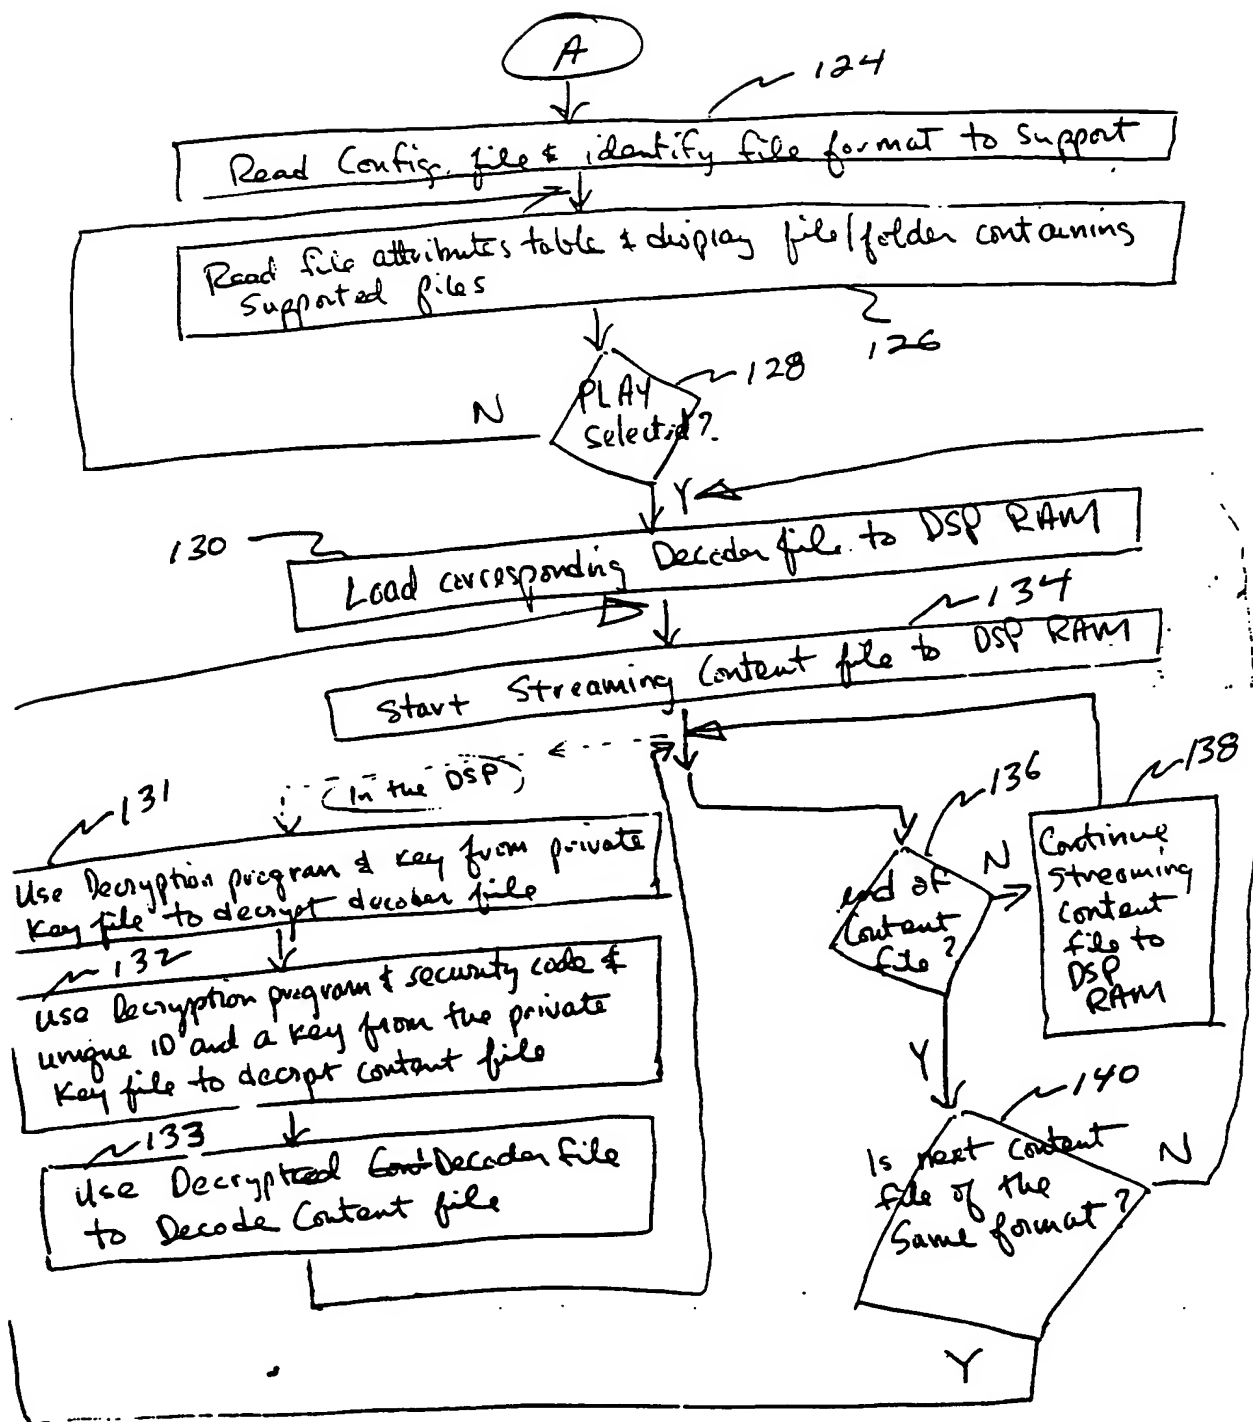 A
124
Read Config. file & identify file format to support
Read file attributes table & display file/folder containing
supported files
126
128
PLAY
selected?
N
Y
130
Load corresponding Decoder file to DSP RAM
134
Start Streaming Content file to DSP RAM
In the DSP
131
Use Decryption program & key from private
key file to decrypt decoder file
132
Use Decryption program & security code &
unique ID and a key from the private
key file to decrypt content file
133
Use Decrypted Decoder file
to Decode Content file
136
end of
Content
file?
N
Y
138
Continue
streaming
content
file to
DSP
RAM
140
Is next content
file of the
same format?
N
Y